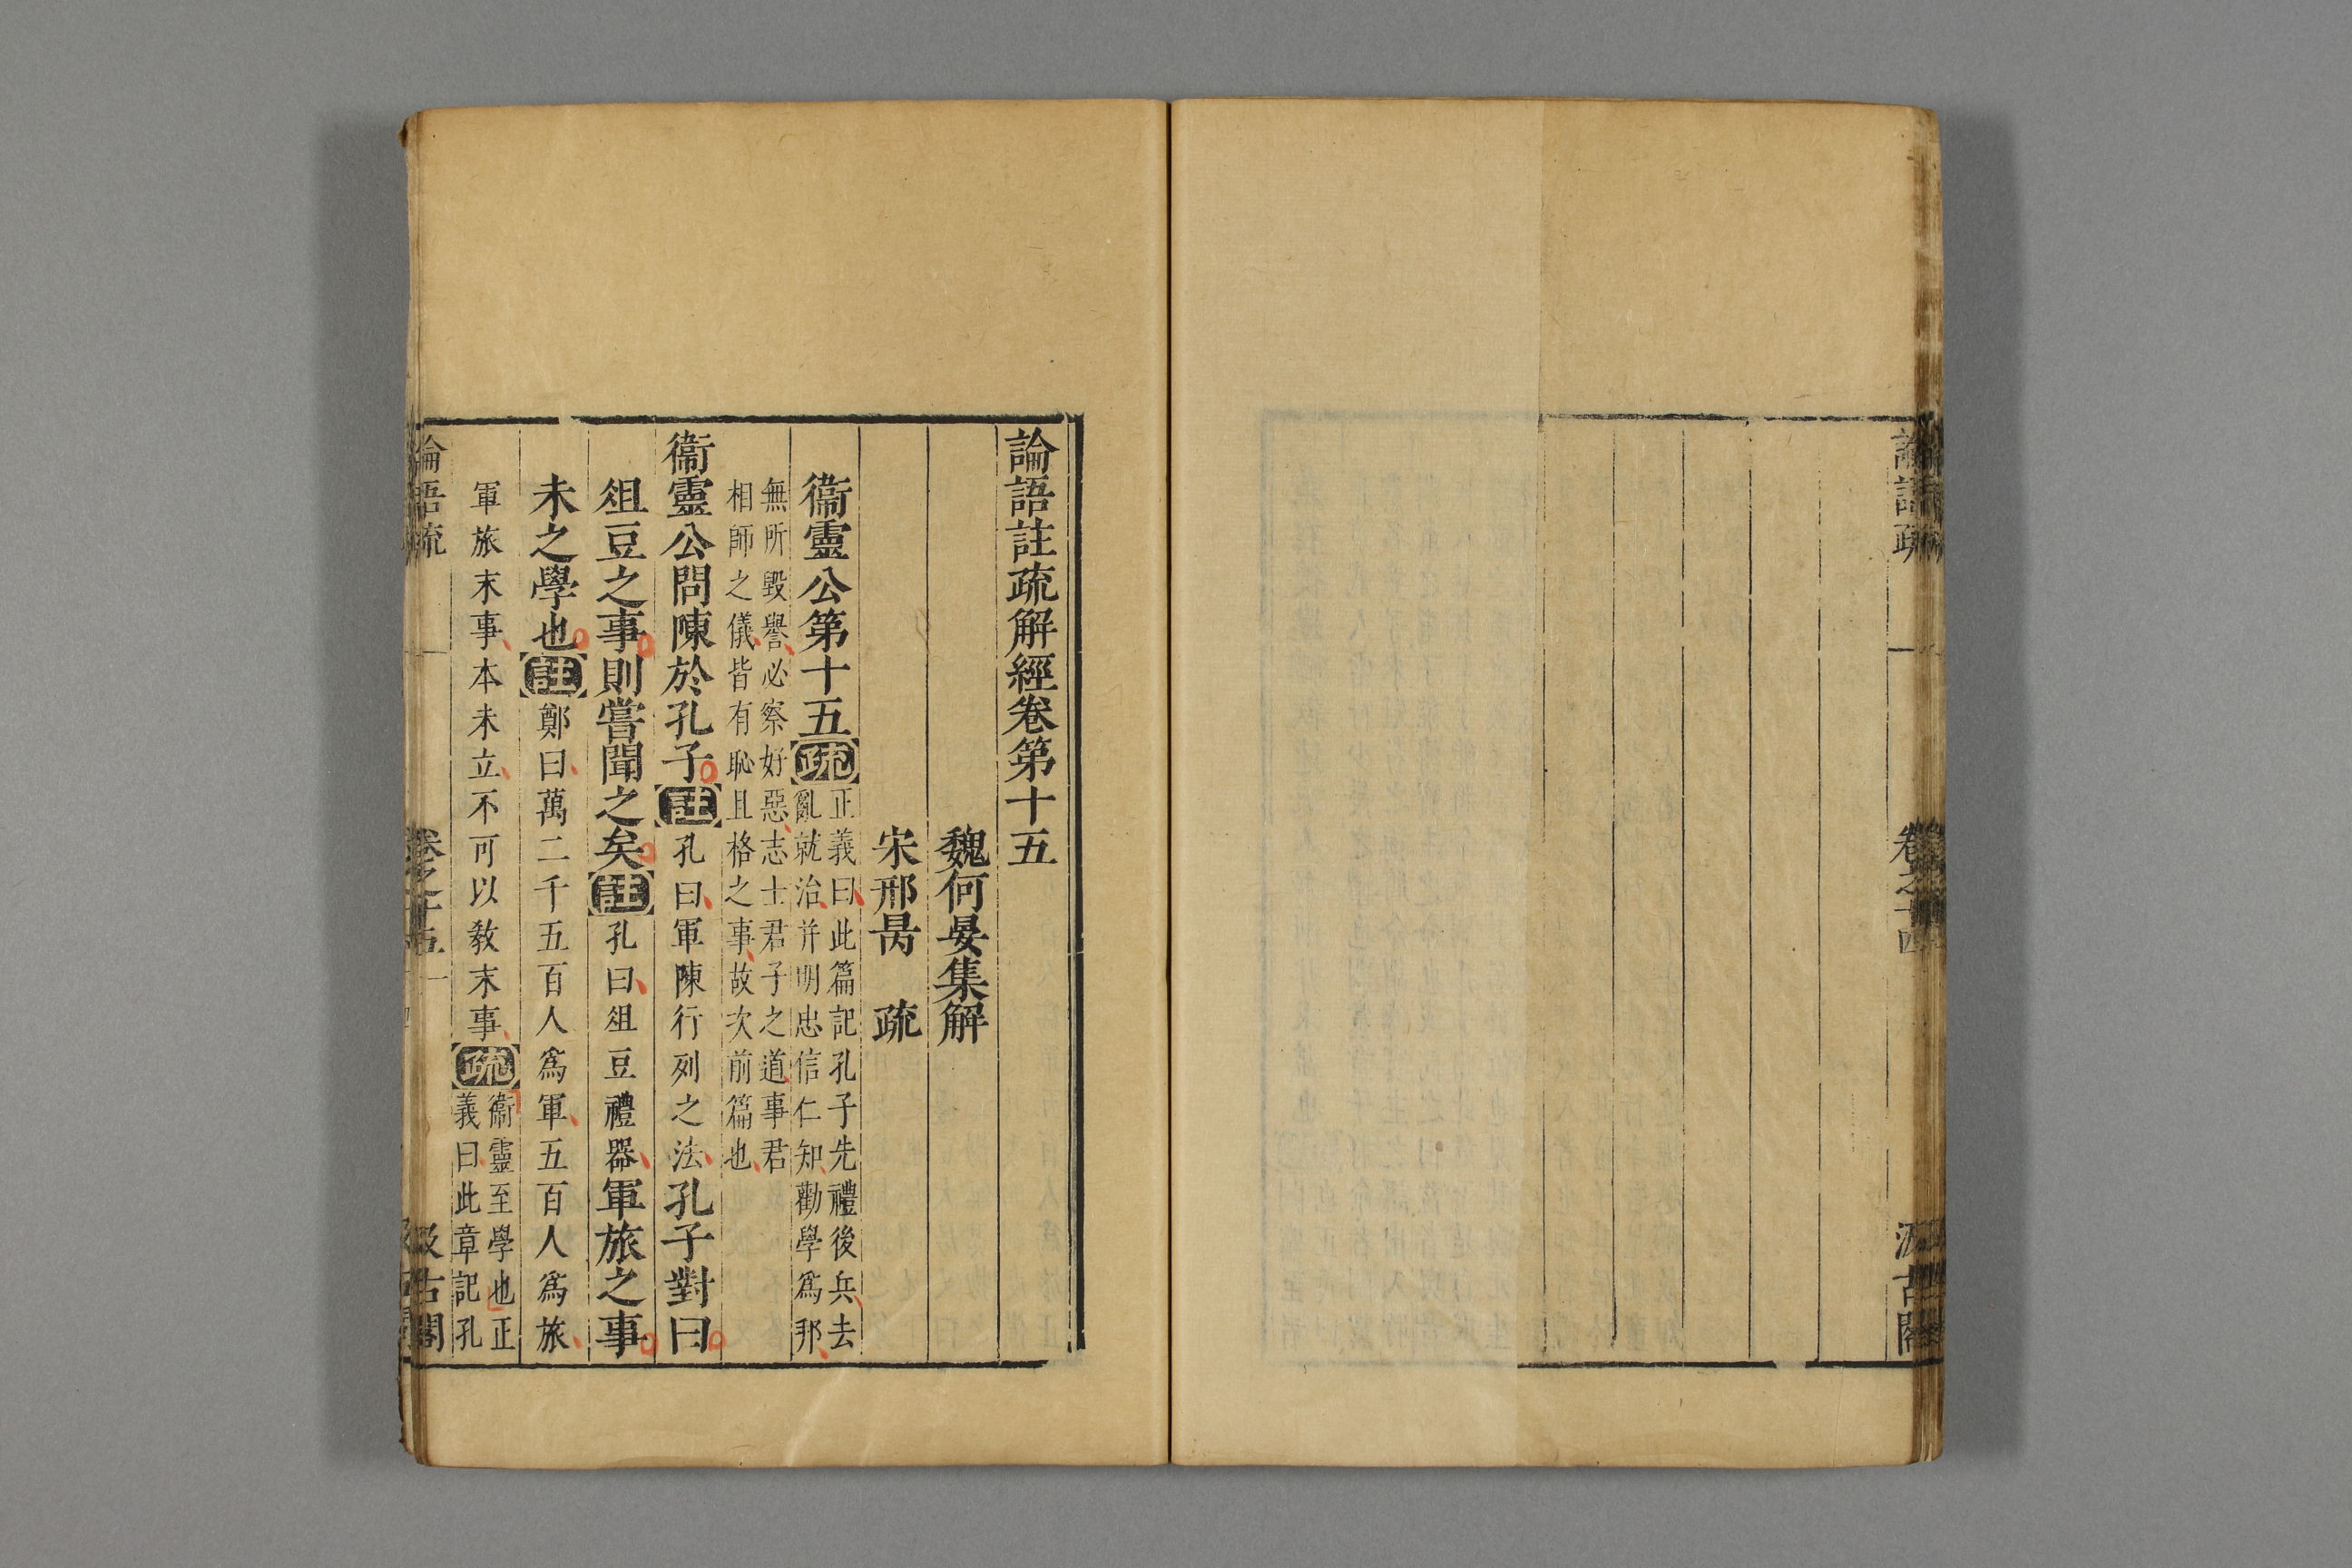 論語註疏解經卷第十五
魏何晏集解
宋邢昺 疏
衞靈公第十五疏正義曰此篇記孔子先禮後兵去
亂就治并明忠信仁知勸學爲邦
無所毀譽必察好惡志士君子之道事君
相師之儀皆有恥且格之事故次前篇也
衞靈公問陳於孔子註孔曰軍陳行列之法孔子對曰
俎豆之事則嘗聞之矣註孔曰俎豆禮器軍旅之事
未之學也註鄭曰萬二千五百人爲軍五百人爲旅
軍旅末事本未立不可以教末事疏衞靈至學也正
義曰此章記孔
論語疏 卷之十五 一 汲古閣